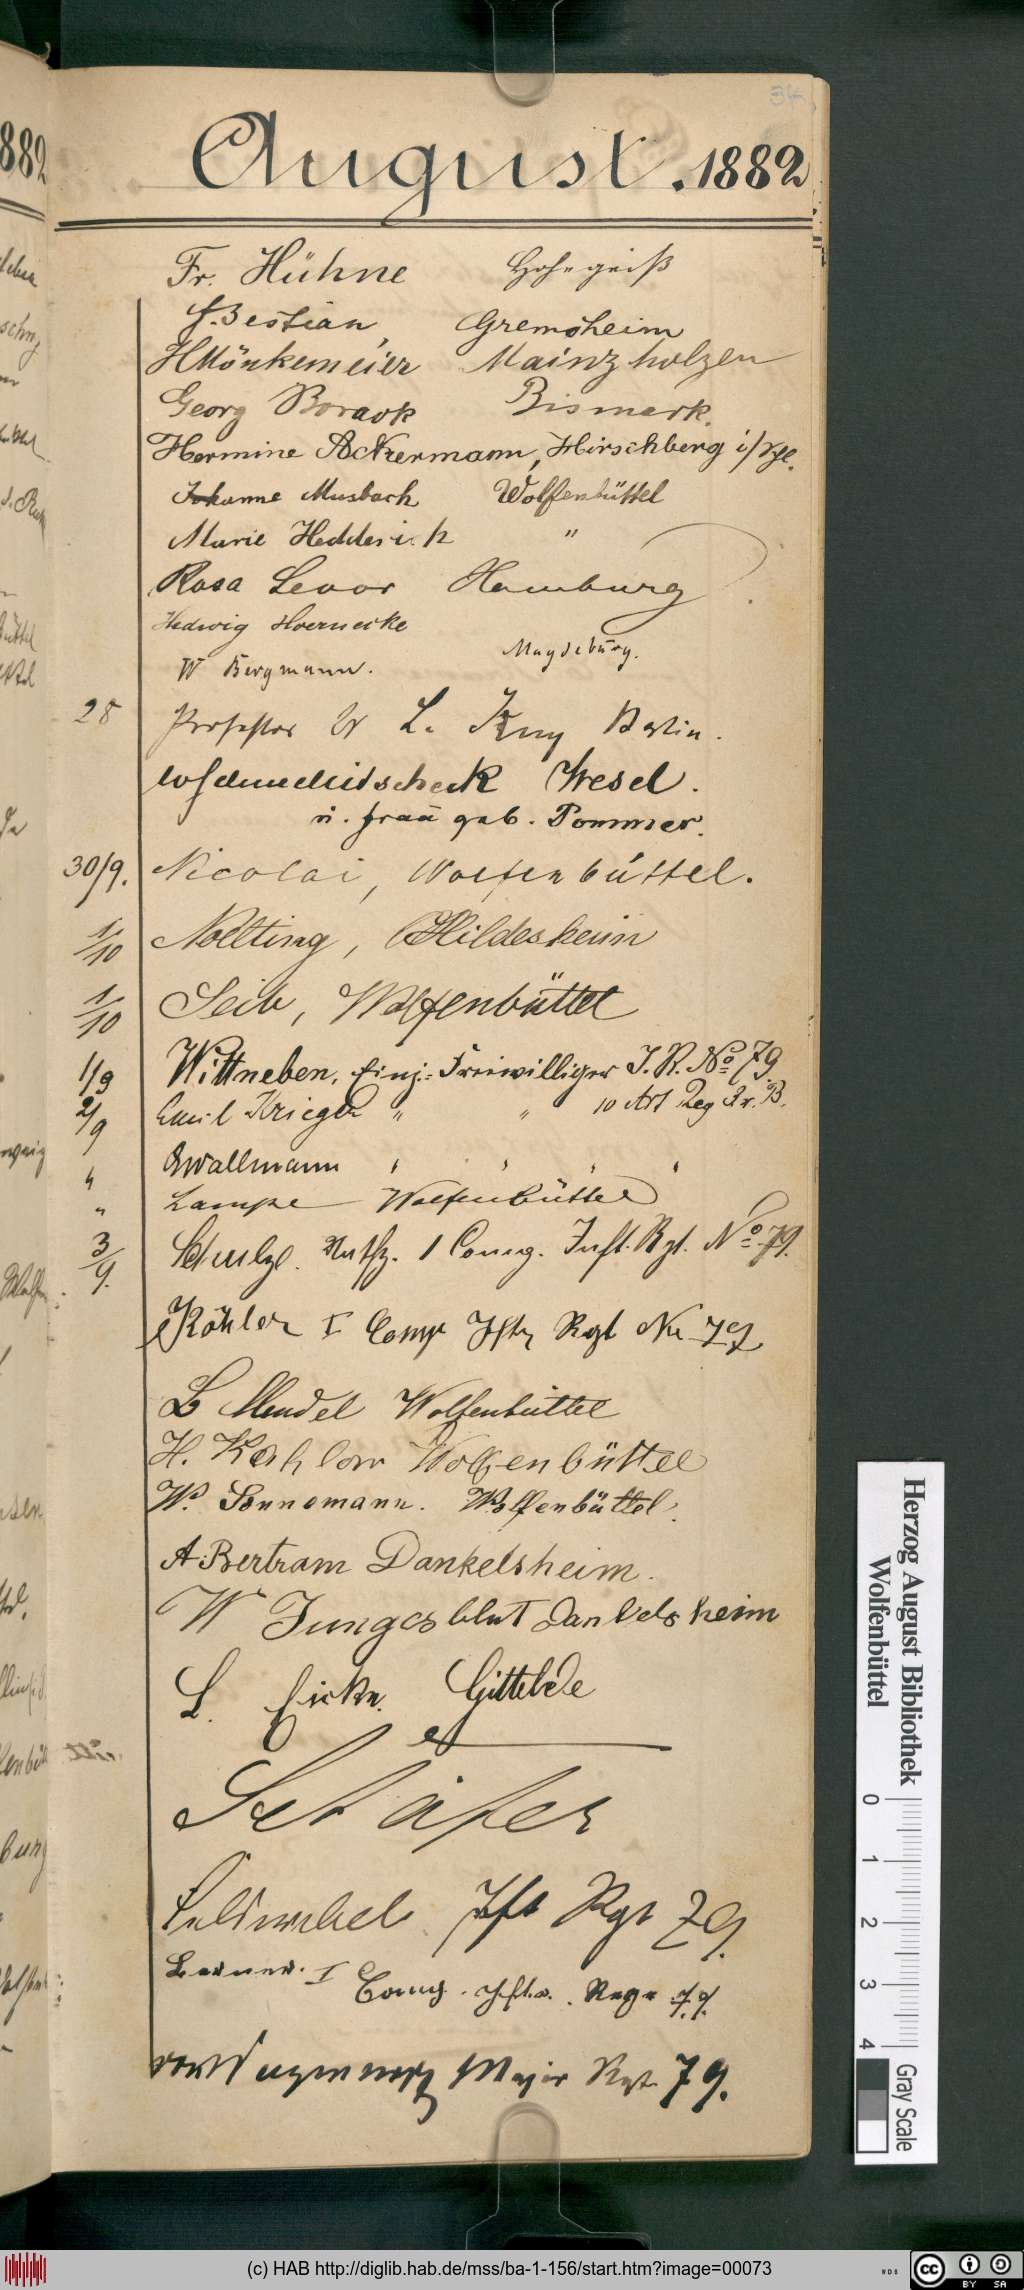 34
August. 1882
Fr. Hühne Hohegeiß
Bestian, Gremsheim
H Mönkemeier Mainzholzen
Georg Borack Bismark.
Hermine Ackermann, Hirschberg i/Schl.
Johanne Musbach Wolfenbüttel
Marie Hedderich "
Rosa Levor Hamburg
Hedwig Hoernecke
Magdeburg.
W Bergmann.
28 Professor Dr L. Kny Berlin.
Wesel.
u. Frau geb. Pommer.
30/9. Nicolai, Wolfenbüttel.
1/10 Nollting, Hildesheim
1/10 Seib, Wolfenbüttel
1/9 Wittneben, Einj.-Freiwilliger I. R. No 79
2/9 Emil Krieger " " 10 Art Reg Br. B.
" Wallmann " " " "
" Lampe Wolfenbüttel
3/9. Schulze. 1 Comp. Inft. Rgt. No. 79.
Köhler I Comp Jftr Rgt Nr 79
L Mendel Wolfenbüttel
H. Kahlow Wolfenbüttel
W. Sonnemann. Wolfenbüttel.
A. Bertram Dankelsheim.
W Jungesblut Dankelsheim
L. Eicke. Gittelde
Schäfer
Feldwebel Jft Rgt 79.
Berner. I Comp. Jftr. Rege 79.
Major Rgt. 79.
Herzog August Bibliothek
Wolfenbüttel
0 1 2 3 4
Gray Scale
(c) HAB http://diglib.hab.de/mss/ba-1-156/start.htm?image=00073
WDB
cc BY SA